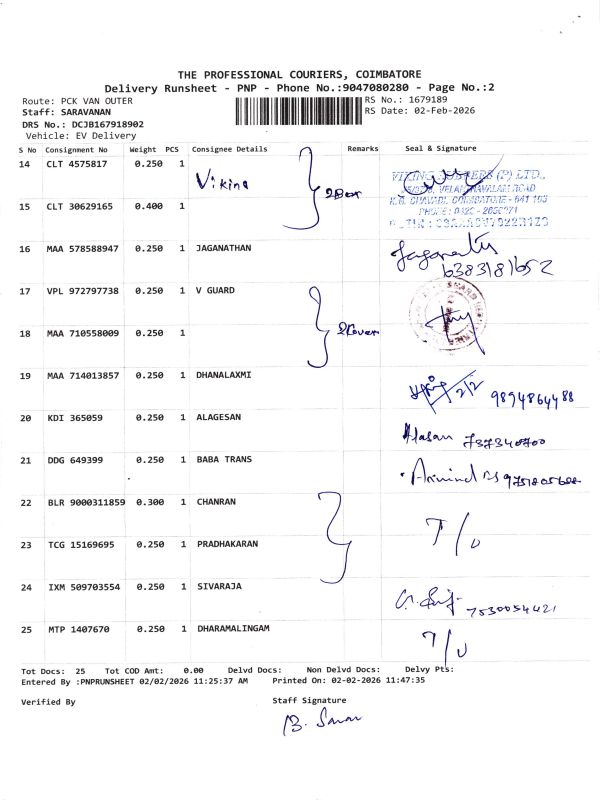 THE PROFESSIONAL COURIERS, COIMBATORE
Delivery Runsheet - PNP - Phone No.:9047080280 - Page No.:2
Route: PCK VAN OUTER
RS No.: 1679189
Staff: SARAVANAN
RS Date: 02-Feb-2026
DRS No.: DCJB167918902
Vehicle: EV Delivery
S No Consignment No Weight PCS Consignee Details Remarks Seal & Signature
14 CLT 4575817 0.250 1 Viking 2Box
15 CLT 30629165 0.400 1
16 MAA 578588947 0.250 1 JAGANATHAN Jaganathan
6383181652
17 VPL 972797738 0.250 1 V GUARD
2Cover
18 MAA 710558009 0.250 1
19 MAA 714013857 0.250 1 DHANALAXMI 2/2 9894864488
20 KDI 365059 0.250 1 ALAGESAN
21 DDG 649399 0.250 1 BABA TRANS Arvind
22 BLR 9000311859 0.300 1 CHANRAN T/O
23 TCG 15169695 0.250 1 PRADHAKARAN
24 IXM 509703554 0.250 1 SIVARAJA 7530054421
25 MTP 1407670 0.250 1 DHARAMALINGAM T/O
Tot Docs: 25 Tot COD Amt: 0.00 Delvd Docs: Non Delvd Docs: Delvy Pts:
Entered By :PNPRUNSHEET 02/02/2026 11:25:37 AM Printed On: 02-02-2026 11:47:35
Verified By Staff Signature